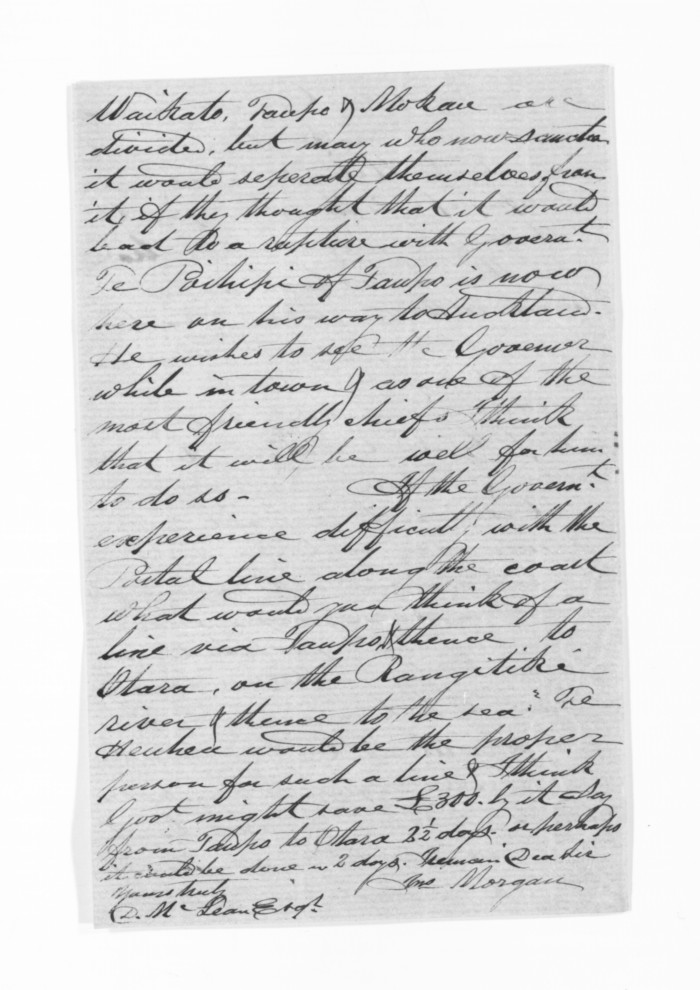 Waikato, Taupo & Mokau are
divided, but many who now sanction
it would seperate themselves from
it, if they thought that it would
lead to a rupture with Governt.
Te Poihipi of Taupo is now
here on his way to Auckland.
He wishes to see the Governor
while in town & as one of the
most friendly chiefs I think
that it will be well for him
to do so - If the Governt.
experience difficulty with the
Postal line along the coast
what would you think of a
line via Taupo, & thence to
Otara, on the Rangitiki
river & thence to the sea. Te
Heuheu would be the proper
person for such a line & I think
Govt might save £300. by it Say
from Taupo to Otara 2½ days. or perhaps
it could be done in 2 days. I remain Dear Sir
Yours truly
Jno Morgan
D. Mc Lean Esqr.